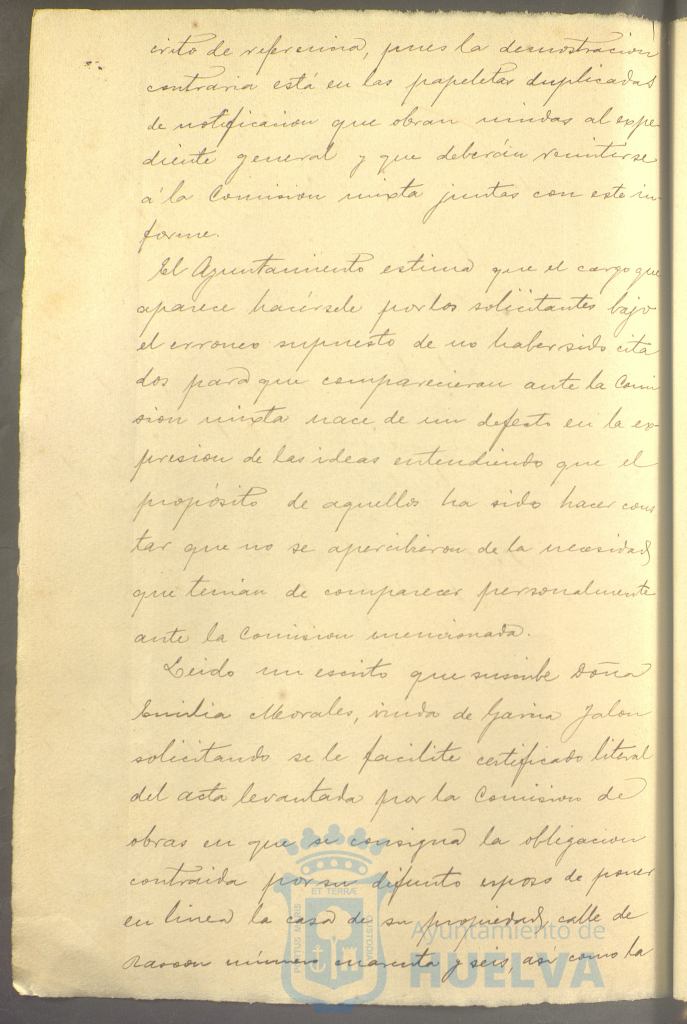 crito de referencia, pues la demostracion
contraria está en las papeletas duplicadas
de notificacion que obran unidas al expe
diente general y que deberán remitirse
á la Comision mixta juntas con este in
forme.
El Ayuntamiento estima que el cargo que
aparece hacérsele por los solicitantes bajo
el erroneo supuesto de no haber sido cita
dos para que comparecieran ante la Comi
sion mixta nace de un defecto en la ex-
presion de las ideas entendiendo que el
propósito de aquellos ha sido hacer cons
tar que no se apercibieron de la necesidad
que tenian de comparecer personalmente
ante la Comision mencionada.
Leido un escrito que suscribe Doña
Emilia Morales, viuda de Garcia Jalon
solicitando se le facilite certificado literal
del acta levantada por la Comision de
obras en que se consigna la obligacion
contraida por su difunto esposo de poner
en linea la casa de su propiedad, calle de
Rascon número cuarenta y seis, así como la
PORTUS MARIS ET TERRÆ CUSTODIA
Ayuntamiento de
HUELVA